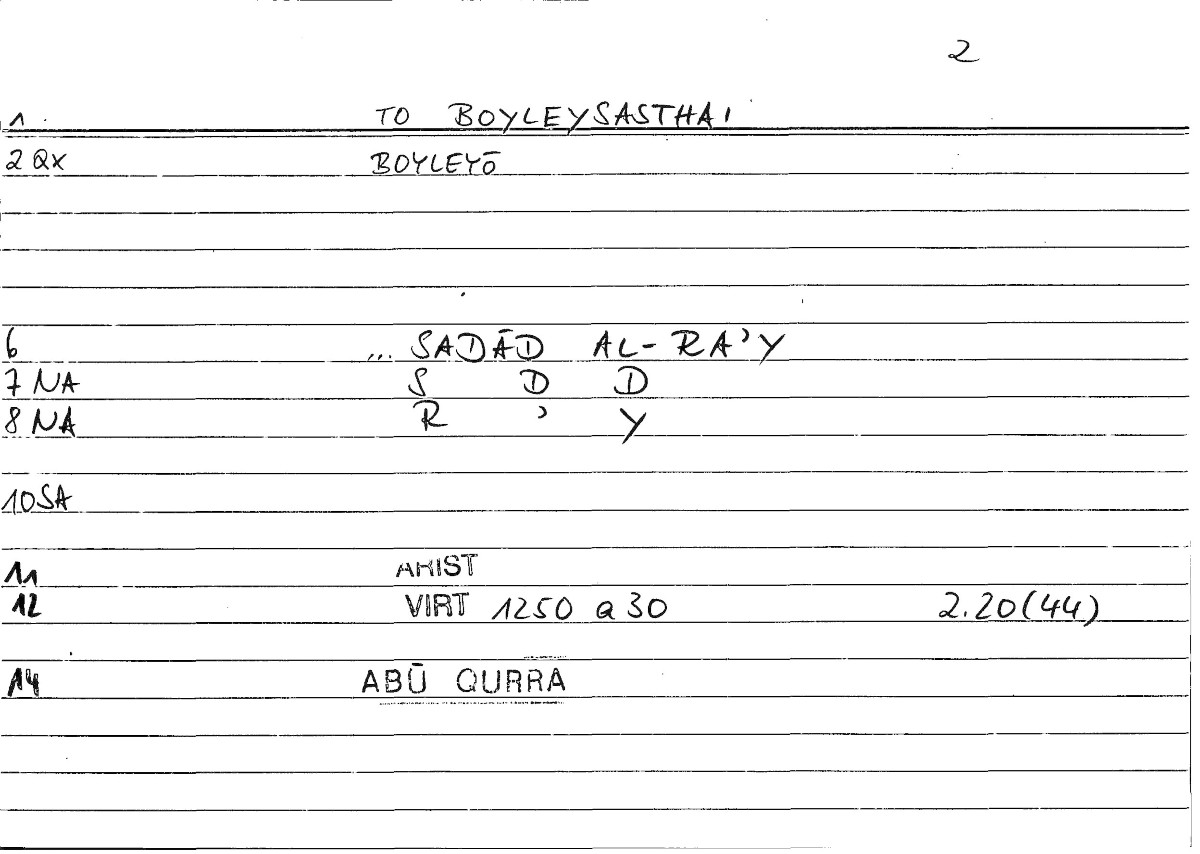 2
1 TO BOYLEYSASTHAI
2 QX BOYLEYŌ
6 ... SADĀD AL-RA’Y
7 NA S D D
8 NA R ’ Y
10 SA
11 ARIST
12 VIRT 1250 a 30 2.20(44)
14 ABŪ QURRA